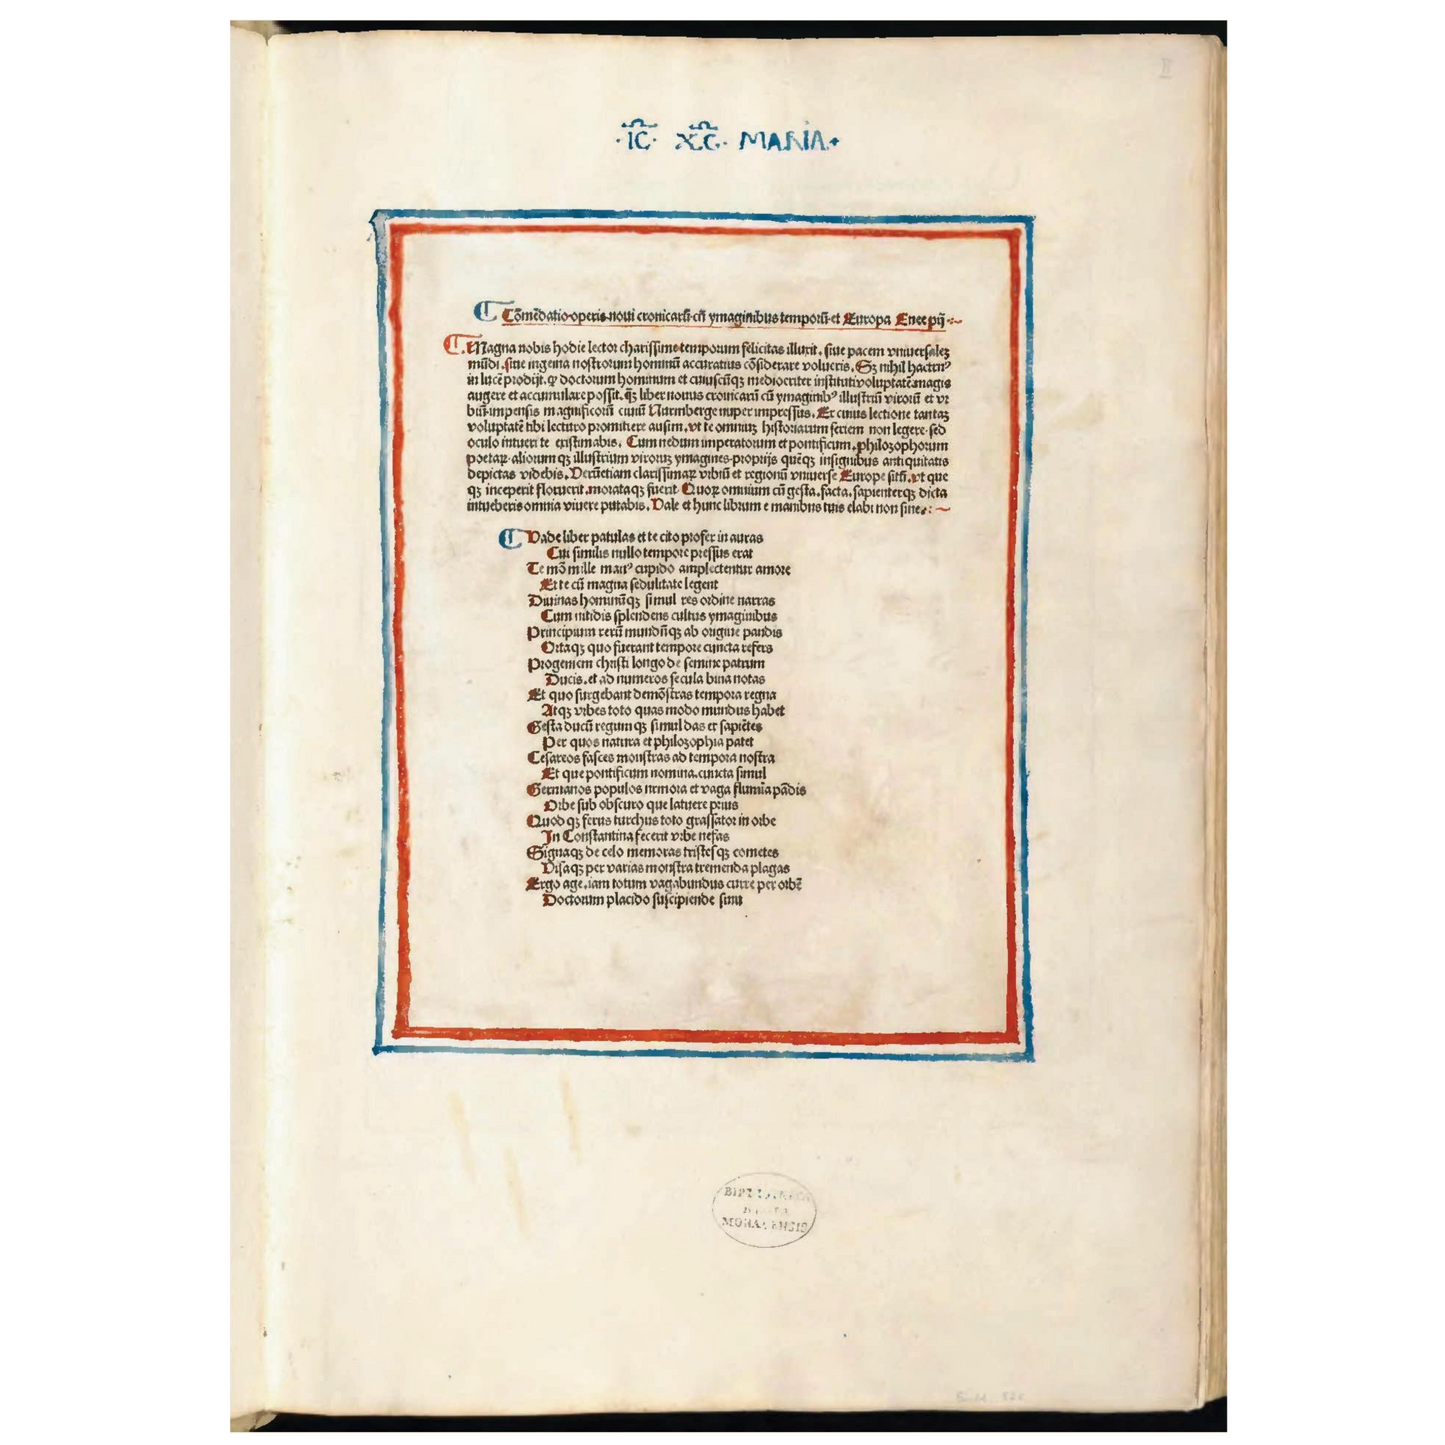 ·IC· XC· MARIA·
Cōmēdatio operis noui cronicarū cū ymaginibus temporū et Europa Enee pij
Magna nobis hodie lector charissime temporum felicitas illuxit, siue pacem vniuersalez
mūdi, siue ingenia nostrorum hominū accuratius cōsiderare volueris. Sz nihil hacten⁹
in lucē prodijt. qꝫ doctorum hominum et cuiuscūqꝫ mediocriter instituti voluptatē magis
augere et accumulare possit. qꝫ liber nouus cronicarū cū ymaginib⁹ illustriū virorū et vr
biū impensis magnificorū ciuiū Nurmberge nuper impressus. Ex cuius lectione tantaꝫ
voluptatē tibi lecturo promittere ausim, vt te omniuꝫ historiarum seriem non legere sed
oculo intueri te existimabis. Cum nedum imperatorum et pontificum, philozophorum
poetaꝝ aliorum qꝫ illustrium viroruꝫ ymagines proprijs quēqꝫ insignibus antiquitatis
depictas videbis. Verūetiam clarissimaꝝ vrbiū et regionū vniuerse Europe sitū, vt que
qꝫ inceperit floruerit, morataqꝫ fuerit Quoꝝ omnium cū gesta, facta, sapienterqꝫ dicta
intueberis omnia viuere putabis. Vale et hunc librum e manibus tuis elabi non sine.
Vade liber patulas et te cito profer in auras
Cui similis nullo tempore pressus erat
Te mō mille man⁹ cupido amplectentur amore
Et te cū magna sedulitate legent
Diuinas hominūqꝫ simul res ordine narras
Cum nitidis splendens cultus ymaginibus
Principium rerū mundūqꝫ ab origine pandis
Ortaqꝫ quo fuerant tempore cuncta refers
Progeniem christi longo de semine patrum
Ducis, et ad numeros secula bina notas
Et quo surgebant demōstras tempora regna
Atqꝫ vrbes toto quas modo mundus habet
Gesta ducū regum qꝫ simul das et sapiētes
Per quos natura et philozophia patet
Cesareos fasces monstras ad tempora nostra
Et que pontificum nomina, cuncta simul
Germanos populos nemora et vaga flumīa pādis
Orbe sub obscuro que latuere prius
Quod qꝫ ferus turchus toto grassator in orbe
In Constantina fecerit vrbe nefas
Signaqꝫ de celo memoras tristesqꝫ cometes
Visaqꝫ per varias monstra tremenda plagas
Ergo age, iam totum vagabundus curre per orbē
Doctorum placido suscipiende sinu
MONACENSIS